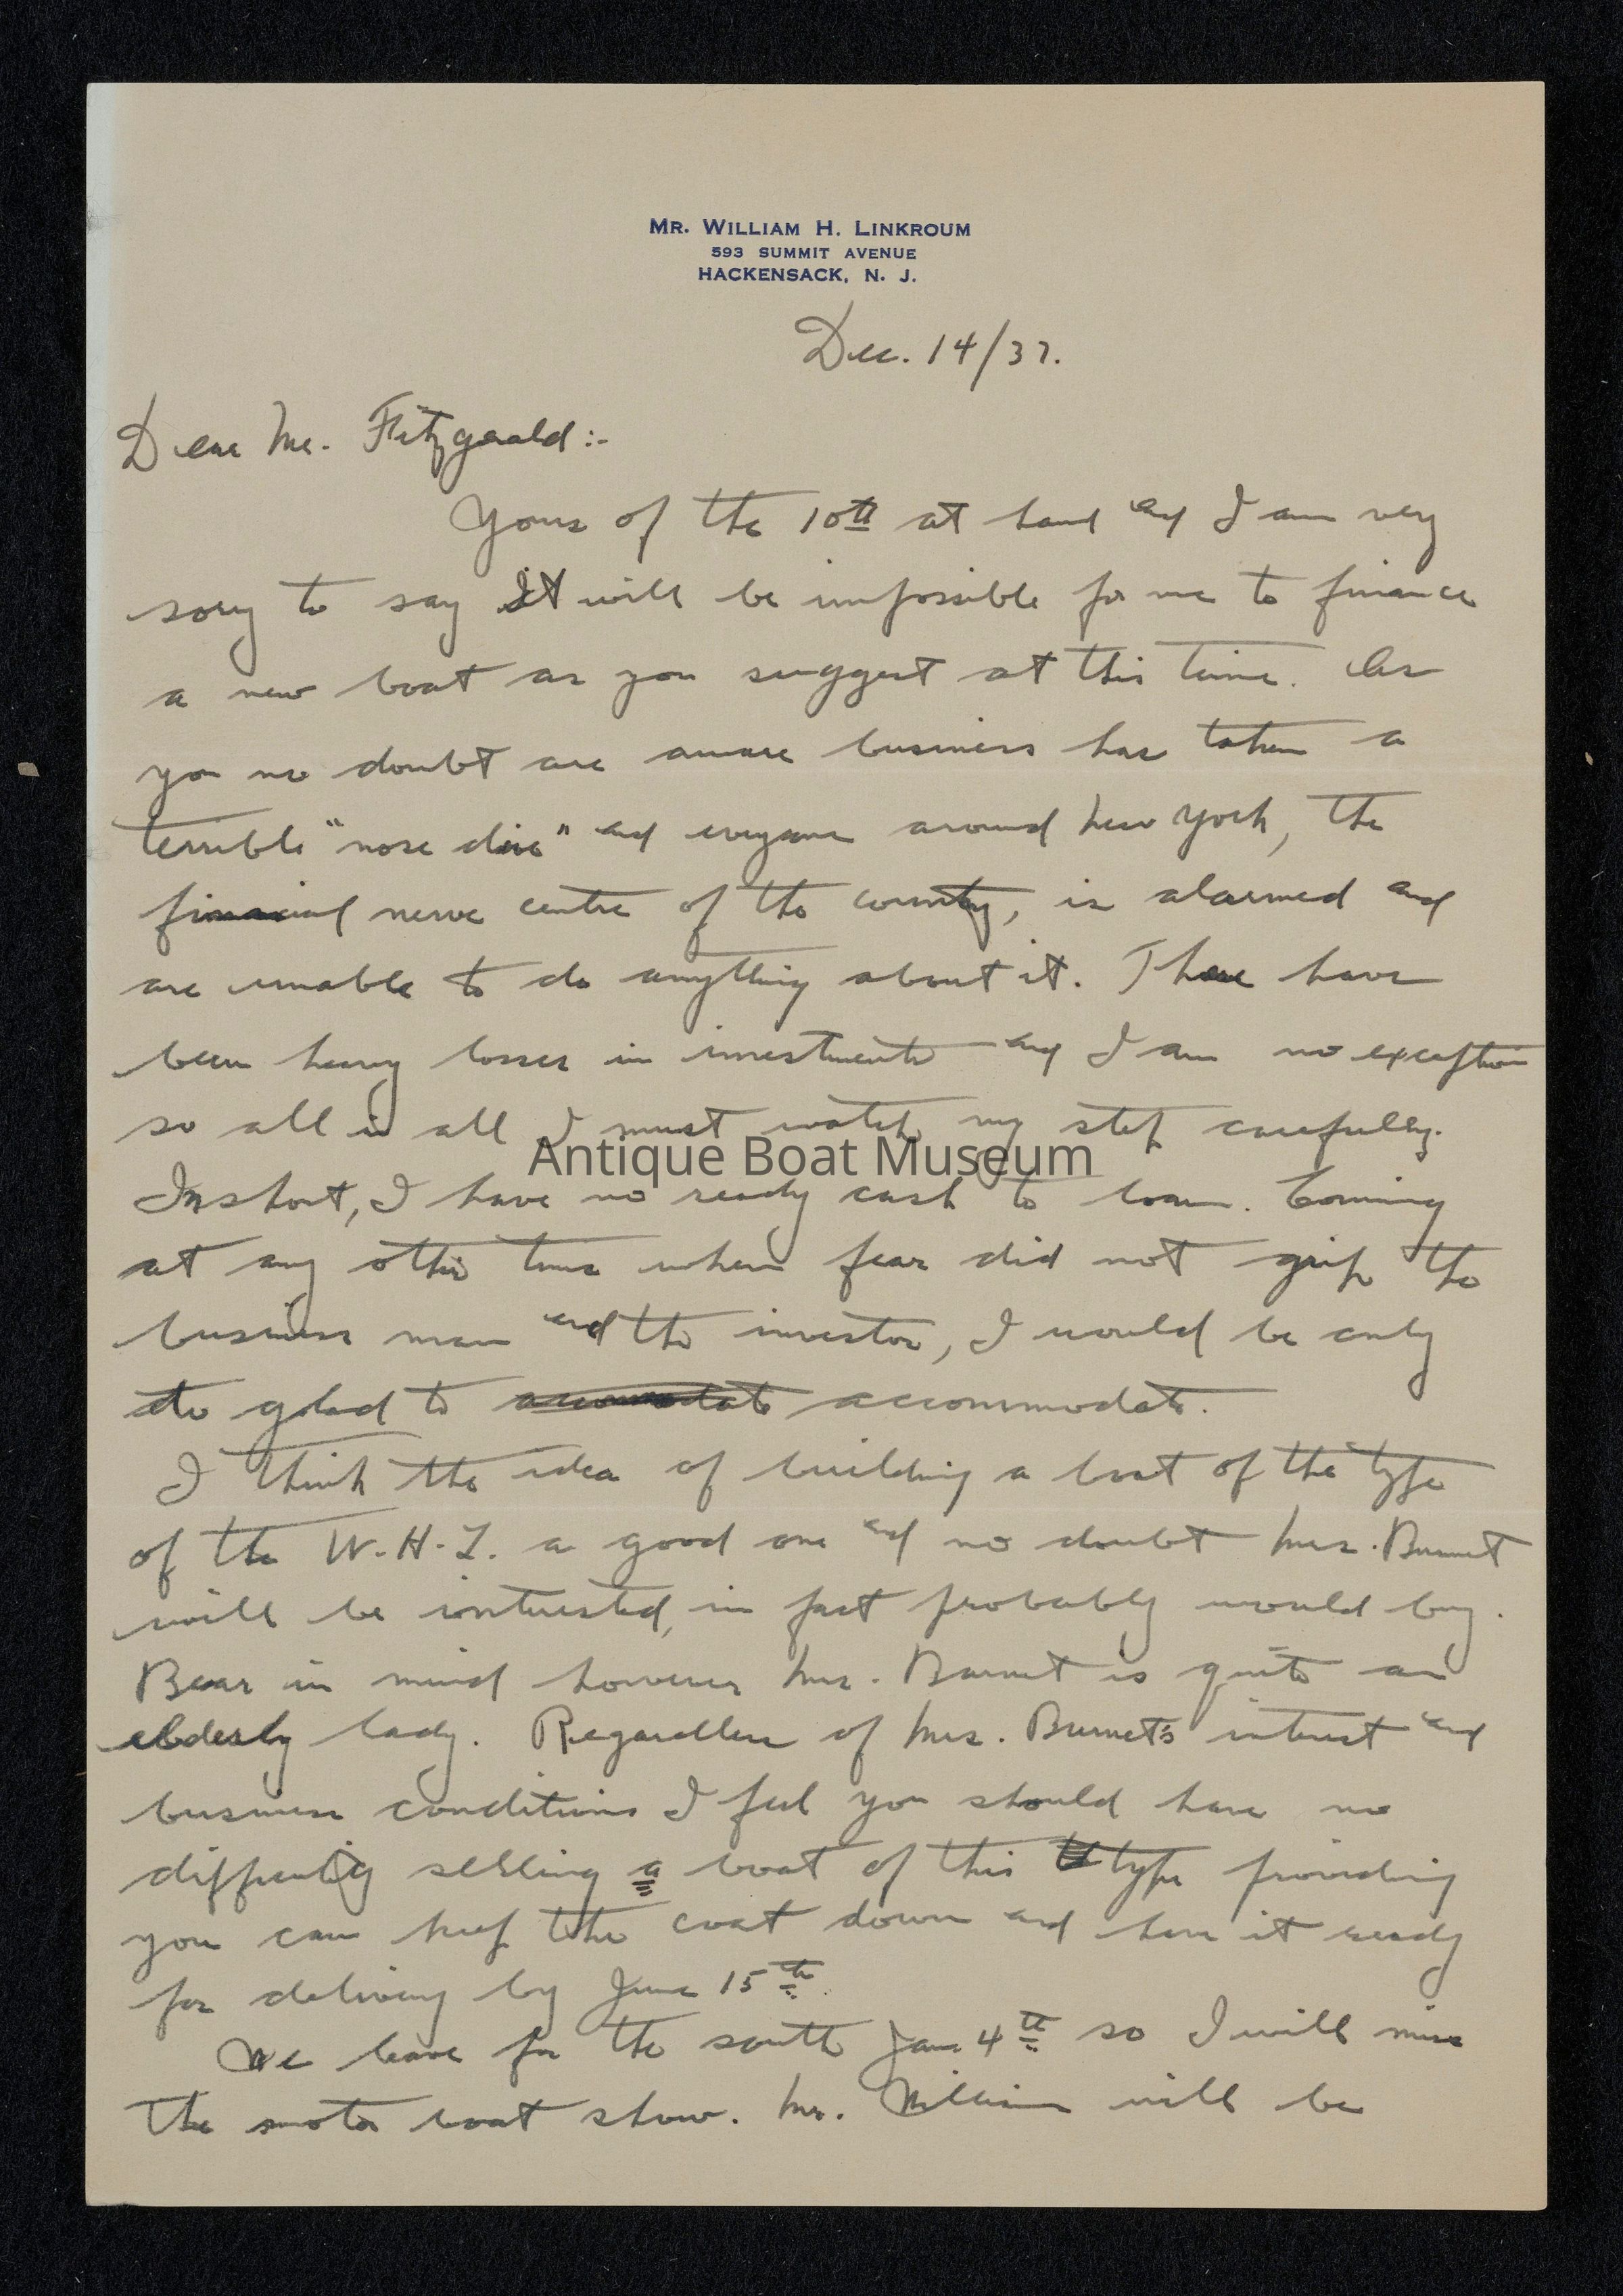 MR. WILLIAM H. LINKROUM
593 SUMMIT AVENUE
HACKENSACK, N. J.
Dec. 14/37.
Dear Mr. Fitzgerald:-
Yours of the 10th at hand and I am very
sorry to say It will be impossible for me to finance
a new boat as you suggest at this time. As
you no doubt are aware business has taken a
terrible "nose dive" and everyone around New York, the
financial nerve centre of the country, is alarmed and
are unable to do anything about it. There have
been heavy losses in investments and I am no exception
so all in all I must watch my step carefully.
Antique Boat Museum
In short, I have no ready cash to loan. Coming
at any other time when fear did not grip the
business man and the investor, I would be only
to glad to accomodate accommodate.
I think the idea of building a boat of the type
of the W.H.L. a good one and no doubt Mrs. Burnet
will be interested, in fact probably would buy.
Bear in mind however Mrs. Burnet is quite an
elderly lady. Regardless of Mrs. Burnet's interest and
business conditions I feel you should have no
difficulty selling a boat of this type providing
you can keep the cost down and have it ready
for delivery by June 15th.
We leave for the south Jan 4th so I will miss
the motor boat show. Mr. William will be